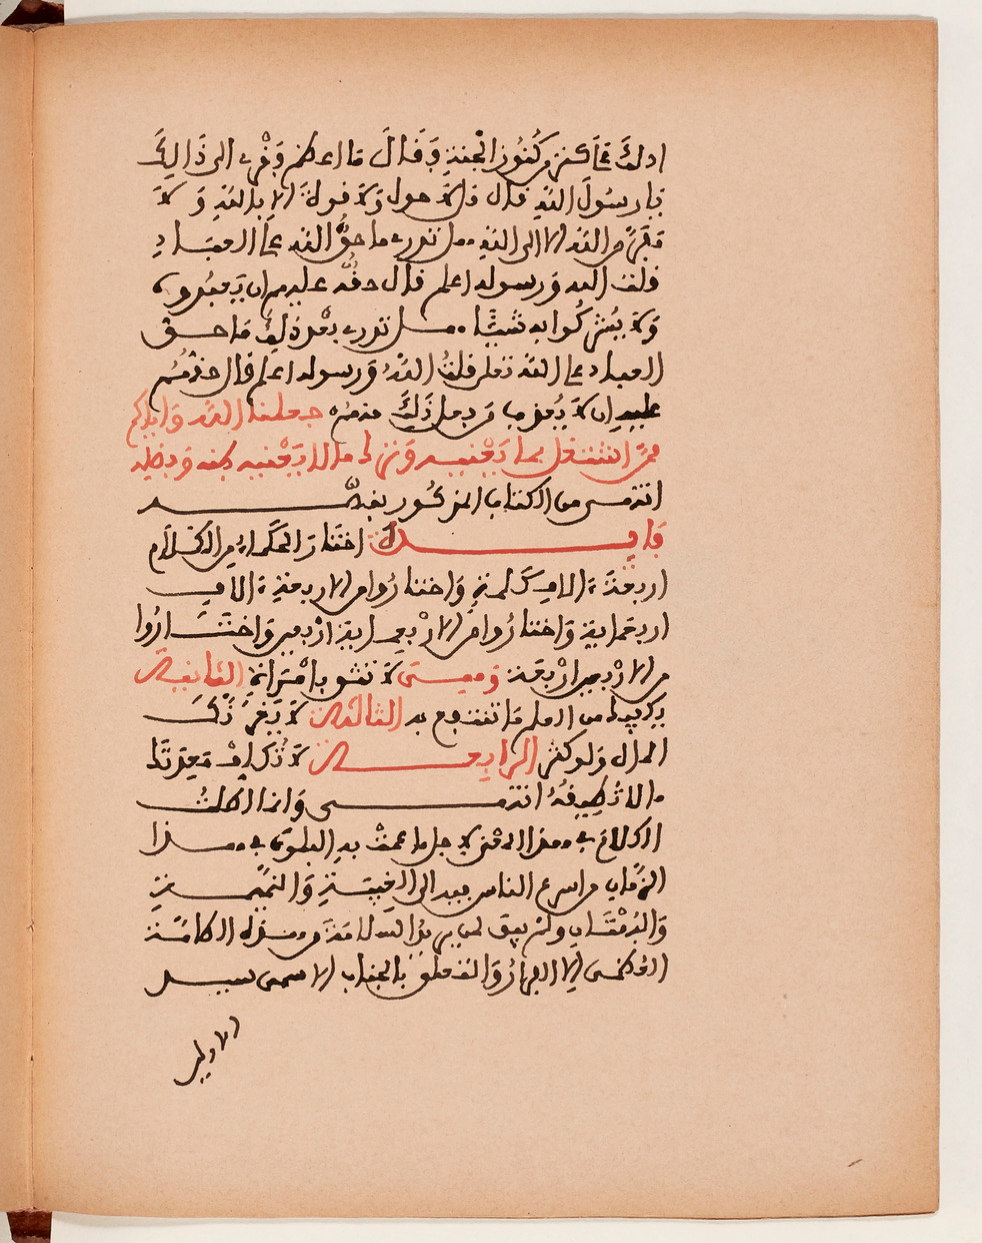 ادلك على كنز من كنوز الجنة وقال ما اعظم وفر الى ذالك
يا رسول الله قال قل لا حول ولا قوة الا بالله ولا
مفر من الله الا الى الله هل تدرى ما حق الله على العباد
قلت الله ورسوله اعلم قال حقه عليهم ان يعبدوه
ولا يشركوا به شيئا هل تدرى بعد ذلك ما حق
العباد على الله تعلى قلت الله ورسوله اعلم قال حقهم
عليه ان لا يعذبها من فعل ذلك منهم جعلنا الله واياكم
ممن اشتغل بما يعنيه ونزه لما لا يعنيه بمنه وفضله
انتهى من الكتاب المذكور بعده
فايدة اختار الحكماء من الكلام
اربعة ءالاف كلمة واختاروا من الاربعة ءالاف
اربعماية واختاروا من الاربعماية اربعين واختاروا
من الاربعين اربعة وهى لا تثق بامراة الثانية
يكفيك من العلم ما تنتفع به الثالثة لا يغرنك
المال ولو كثر الرابعة لا تكلف معدتك
ما لا تطيقه انتهى وانما اطلت
الكلام فى هذا المعنى لاجل ما عمت به البلوى فى هذا
الزمان من اسراع الناس فيه الى الغيبة والنميمة
والبهتان ولم يبق لمن يريد السلامة من هذه الطامة
العظمى الا الفرار والتعلق بالجناب الاسمى سبيل
الاولى